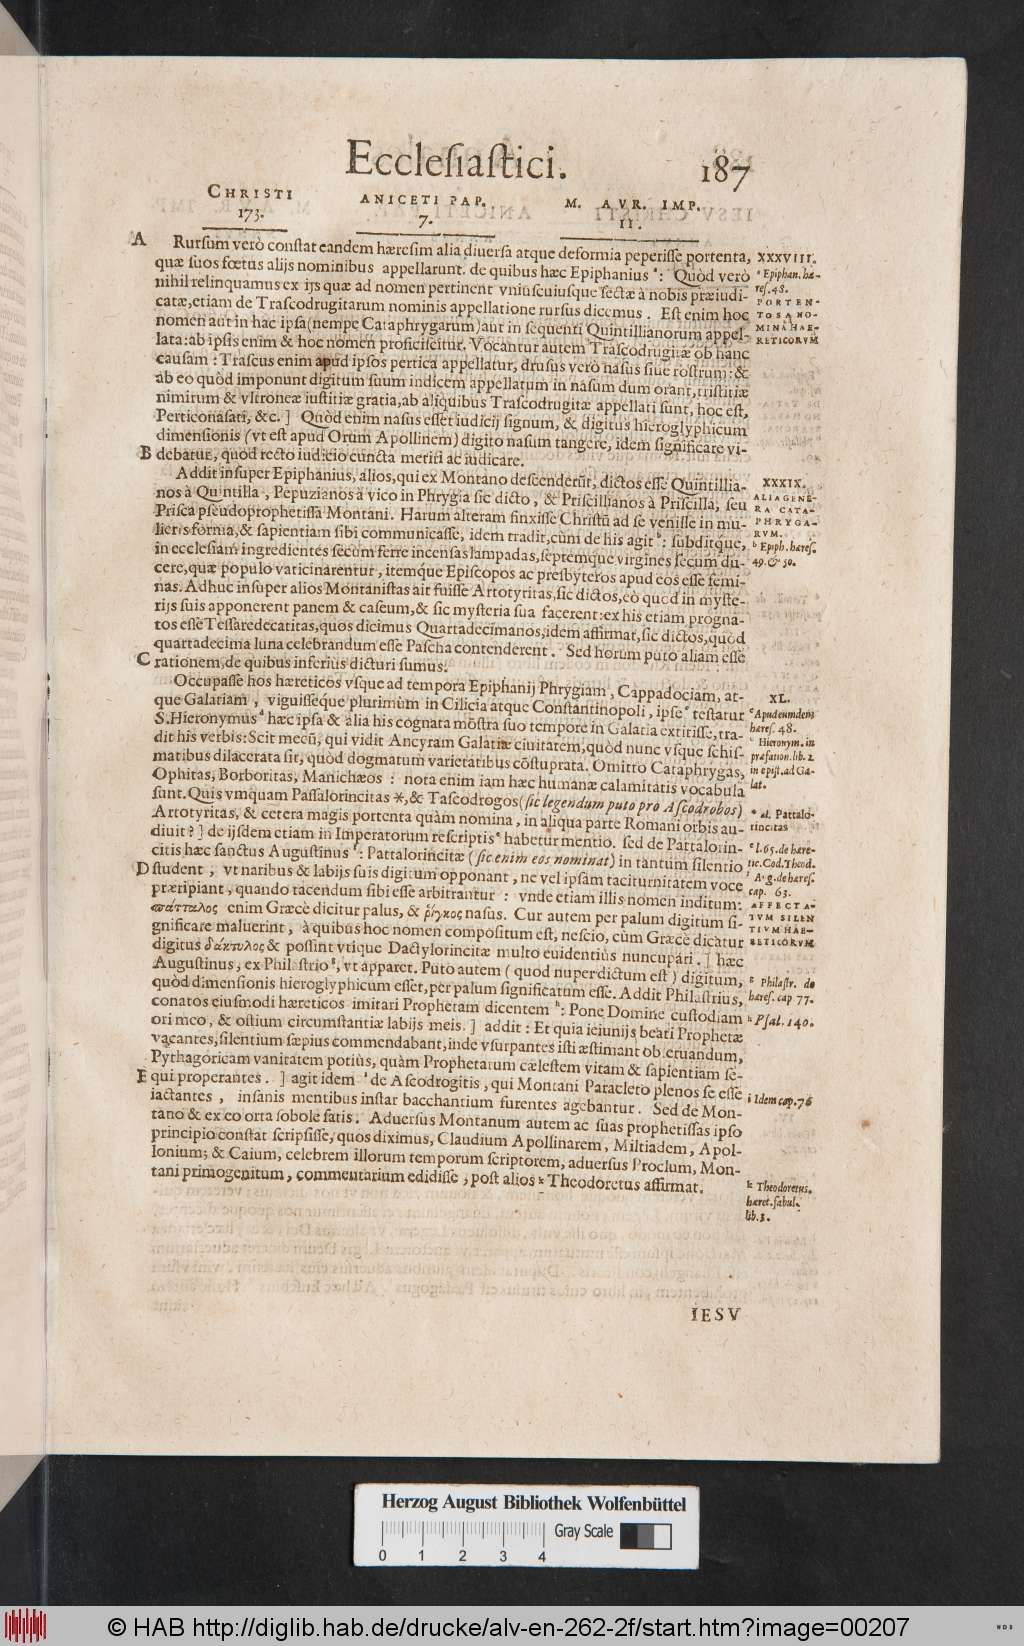 Ecclesiastici. 187
CHRISTI
173.
ANICETI PAP.
7.
M. AVR. IMP.
11.
A Rursum verò constat eandem hæresim alia diuersa atque deformia peperisse portenta,
quæ suos fœtus alijs nominibus appellarunt. de quibus hæc Epiphanius ᵃ: Quòd verò
nihil relinquamus ex ijs quæ ad nomen pertinent vniuscuiusque sectæ à nobis præiudi-
catæ, etiam de Trascodrugitarum nominis appellatione rursus dicemus. Est enim hoc
nomen aut in hac ipsa (nempe Cataphrygarum) aut in sequenti Quintillianorum appel-
lata: ab ipsis enim & hoc nomen proficiscitur. Vocantur autem Trascodrugitæ ob hanc
causam: Trascus enim apud ipsos pertica appellatur, drusus verò nasus siue rostrum: &
ab eo quòd imponunt digitum suum indicem appellatum in nasum dum orant, tristitiæ
nimirum & vltroneæ iustitiæ gratia, ab aliquibus Trascodrugitæ appellati sunt, hoc est,
Perticonasati, &c. ] Quòd enim nasus esset iudicij signum, & digitus hieroglyphicum
dimensionis (vt est apud Orum Apollinem) digito nasum tangere, idem significare vi-
B debatur, quod recto iudicio cuncta metiri ac iudicare.
Addit insuper Epiphanius, alios, qui ex Montano descenderūt, dictos esse Quintillia-
nos à Quintilla, Pepuzianos à vico in Phrygia sic dicto, & Priscillianos à Priscilla, seu
Prisca pseudoprophetissa Montani. Harum alteram finxisse Christū ad se venisse in mu-
lieris forma, & sapientiam sibi communicasse, idem tradit, cùm de his agit ᵇ: subditque,
in ecclesiam ingredientes secum ferre incensas lampadas, septemque virgines secum du-
cere, quæ populo vaticinarentur, itemque Episcopos ac presbyteros apud eos esse femi-
nas. Adhuc insuper alios Montanistas ait fuisse Artotyritas, sic dictos, eò quod in myste-
rijs suis apponerent panem & caseum, & sic mysteria sua facerent: ex his etiam progna-
tos esse Tessaredecatitas, quos dicimus Quartadecimanos, idem affirmat, sic dictos, quòd
quartadecima luna celebrandum esse Pascha contenderent. Sed horum puto aliam esse
C rationem, de quibus inferius dicturi sumus.
Occupasse hos hæreticos vsque ad tempora Epiphanij Phrygiam, Cappadociam, at-
que Galatiam, viguisseque plurimùm in Cilicia atque Constantinopoli, ipse ᶜ testatur
S. Hieronymus ᵈ hæc ipsa & alia his cognata mōstra suo tempore in Galatia extitisse, tra-
dit his verbis: Scit mecū, qui vidit Ancyram Galatiæ ciuitatem, quòd nunc vsque schis-
matibus dilacerata sit, quòd dogmatum varietatibus cōstuprata. Omitto Cataphrygas,
Ophitas, Borboritas, Manichæos: nota enim iam hæc humanæ calamitatis vocabula
sunt. Quis vmquam Passalorincitas *, & Tascodrogos (sic legendum puto prò Ascodrobos)
Artotyritas, & cetera magis portenta quàm nomina, in aliqua parte Romani orbis au-
diuit? ] de ijsdem etiam in Imperatorum rescriptis ᵉ habetur mentio. sed de Pattalorin-
citis hæc sanctus Augustinus ᶠ: Pattalorincitæ (sic enim eos nominat) in tantum silentio
D student, vt naribus & labijs suis digitum opponant, ne vel ipsam taciturnitatem voce
præripiant, quando tacendum sibi esse arbitrantur: vnde etiam illis nomen inditum:
πάτταλος enim Græcè dicitur palus, & ῥίγκος nasus. Cur autem per palum digitum si-
gnificare maluerint, à quibus hoc nomen compositum est, nescio, cùm Græcè dicatur
digitus δάκτυλος & possint vtique Dactylorincitæ multo euidentiùs nuncupari. ] hæc
Augustinus, ex Philastrio ᵍ, vt apparet. Puto autem (quod nuper dictum est) digitum,
quòd dimensionis hieroglyphicum esset, per palum significatum esse. Addit Philastrius,
conatos eiusmodi hæreticos imitari Prophetam dicentem ʰ: Pone Domine custodiam
ori meo, & ostium circumstantiæ labijs meis. ] addit: Et quia ieiunijs beati Prophetæ
vacantes, silentium sæpius commendabant, inde vsurpantes isti æstimant obseruandum,
Pythagoricam vanitatem potiùs, quàm Prophetarum cælestem vitam & sapientiam se-
E qui properantes. ] agit idem ⁱ de Ascodrogitis, qui Montani Paracleto plenos se esse
iactantes, insanis mentibus instar bacchantium furentes agebantur. Sed de Mon-
tano & ex eo orta sobole satis. Aduersus Montanum autem ac suas prophetissas ipso
principio constat scripsisse, quos diximus, Claudium Apollinarem, Miltiadem, Apol-
lonium; & Caium, celebrem illorum temporum scriptorem, aduersus Proclum, Mon-
tani primogenitum, commentarium edidisse, post alios ᵏ Theodoretus affirmat.
XXXVIII.
ᵃ Epiphan. hæ-
res. 48.
PORTEN-
TOSA NO-
MINA HAE-
RETICORVM
XXXIX.
ALIA GENE-
RA CATA-
PHRYGA-
RVM.
ᵇ Epiph. hæres.
49. & 50.
XL.
ᶜ Apud eumdem
hæres. 48.
Hieronym. in
præfation. lib. 2
in epist. ad Ga-
lat.
* al. Pattalo-
rincitas
ᵉ l. 65. de hære-
tic. Cod. Theod.
ᶠ Aug. de hæres.
cap. 63.
AFFECTA-
TVM SILEN
TIVM HAE-
RETICORVM
ᵍ Philastr. de
hæres. cap 77.
ʰ Psal. 140.
i Idem cap. 76
ᵏ Theodoretus.
hæret. fabul.
lib. 3.
IESV
Herzog August Bibliothek Wolfenbüttel
Gray Scale
0 1 2 3 4
© HAB http://diglib.hab.de/drucke/alv-en-262-2f/start.htm?image=00207